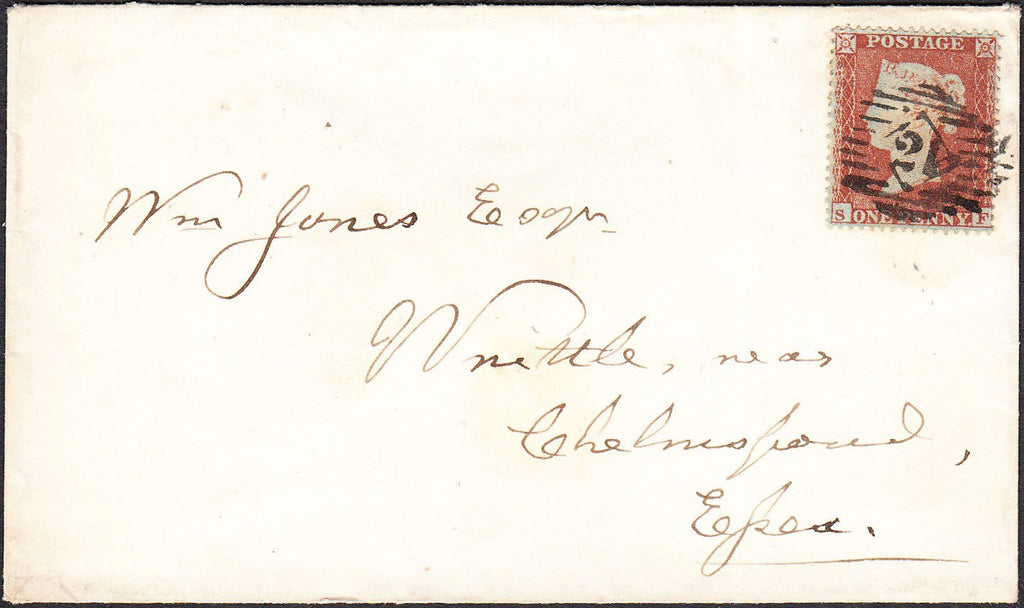 POSTAGE
S ONE PENNY F
Wm Jones Esqr
Writtle, near
Chelmsford,
Essex.